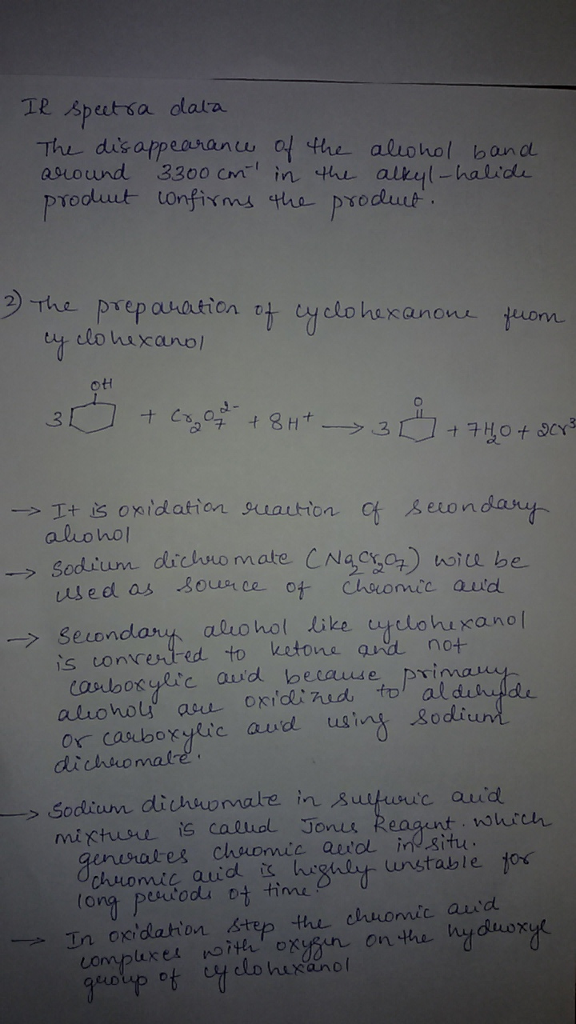 IR spectra data
The disappearance of the alcohol band
around 3300 cm⁻¹ in the alkyl-halide
product confirms the product.
2) The preparation of cyclohexanone from
cyclohexanol
OH O
3 + Cr₂O₇²⁻ + 8H⁺ → 3 + 7H₂O + 2Cr³
→ It is oxidation reaction of secondary
alcohol
→ Sodium dichromate (Na₂Cr₂O₇) will be
used as source of chromic acid
→ Secondary alcohol like cyclohexanol
is converted to ketone and not
carboxylic acid because primary
alcohols are oxidized to aldehyde
or carboxylic acid using sodium
dichromate.
→ Sodium dichromate in sulfuric acid
mixture is called Jones Reagent. which
generates chromic acid in situ.
chromic acid is highly unstable for
long periods of time.
→ In oxidation step the chromic acid
complexes with oxygen on the hydroxyl
group of cyclohexanol